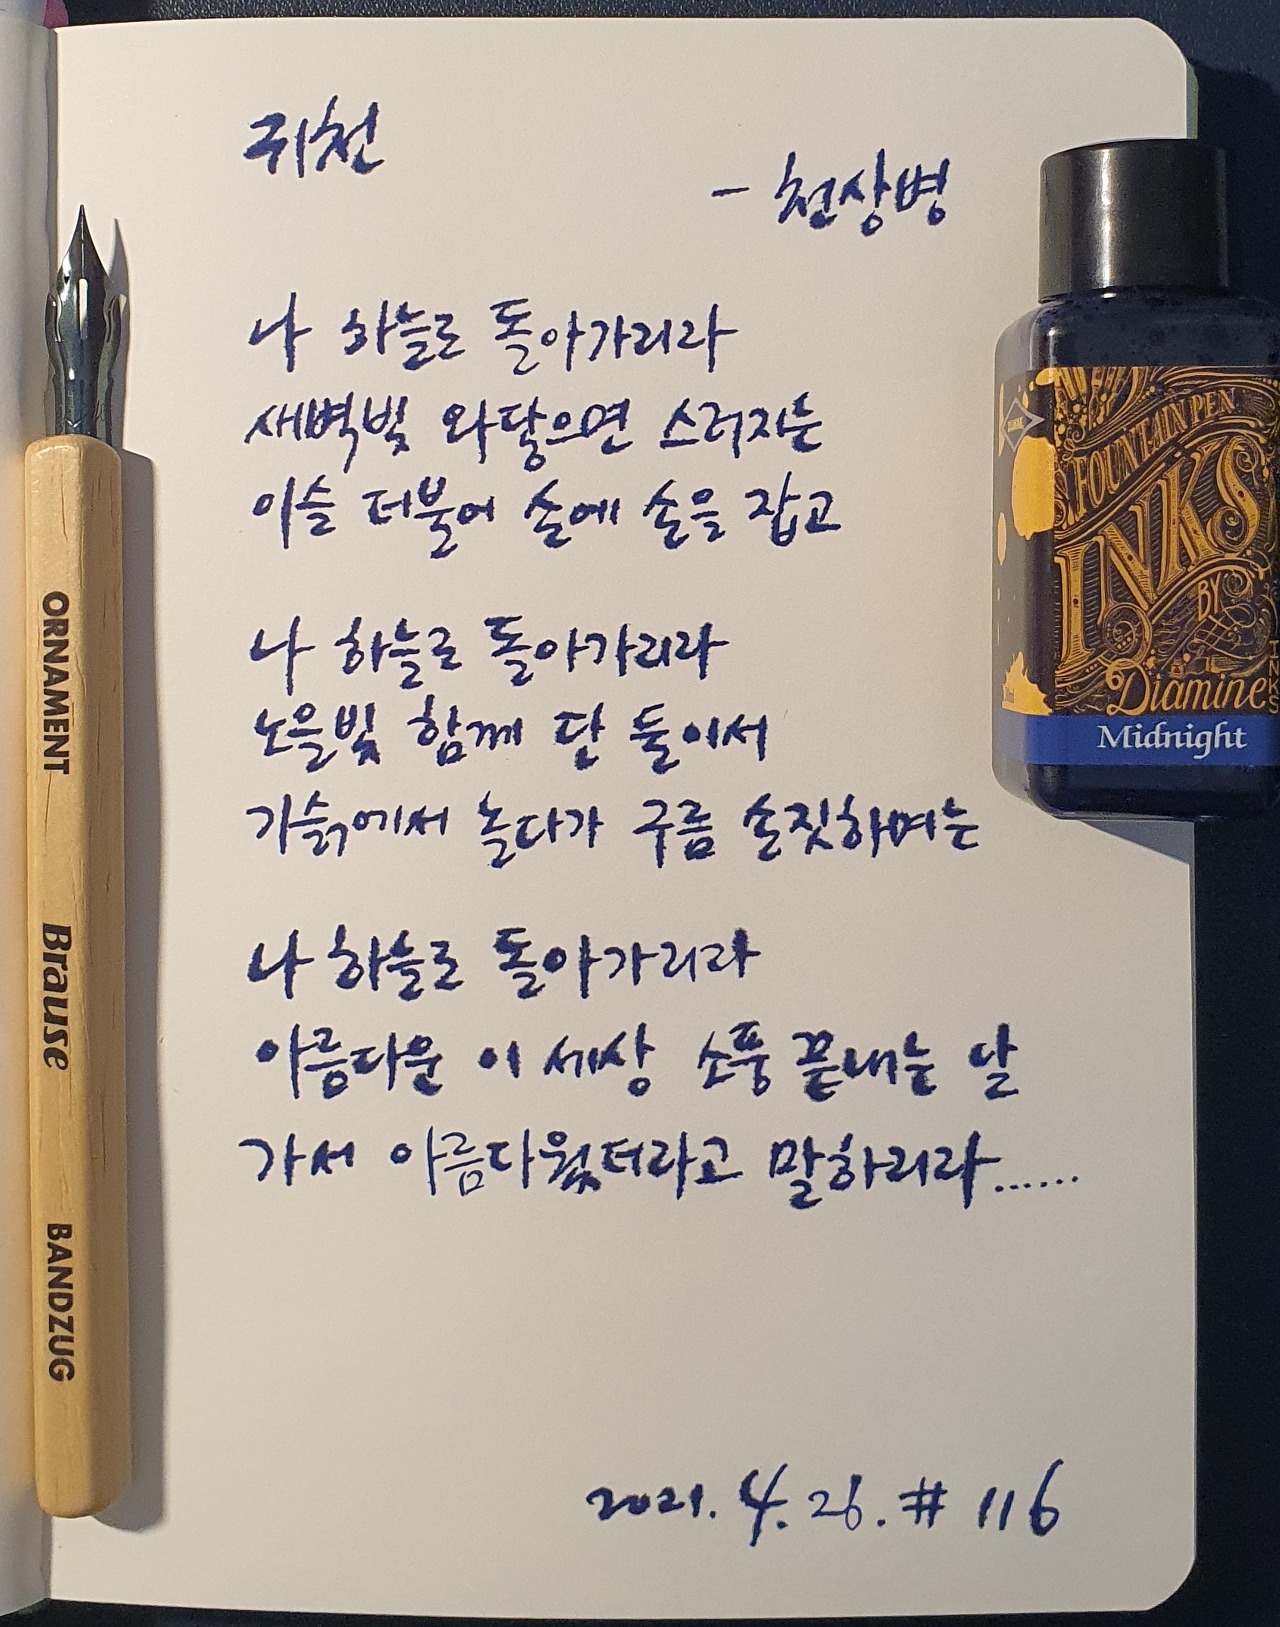 귀천
- 천상병
나 하늘로 돌아가리라
새벽빛 와닿으면 스러지는
이슬 더불어 손에 손을 잡고
나 하늘로 돌아가리라
노을빛 함께 단 둘이서
기슭에서 놀다가 구름 손짓하며는
나 하늘로 돌아가리라
아름다운 이 세상 소풍 끝내는 날
가서 아름다웠더라고 말하리라......
2021. 4. 26. # 116
ORNAMENT Brause BANDZUG
FOUNTAIN PEN
INKS
BY
Diamine
Midnight